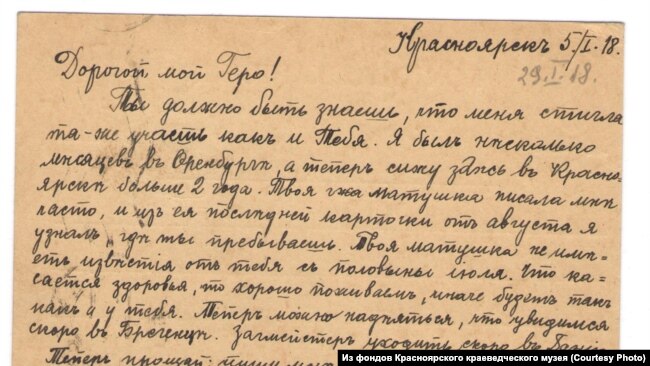 Красноярскъ 5/I.18.
29.I.18.
Дорогой мой Геро!
Ты должно быть знаешь, что меня стигла
та-же участь какъ и Тебя. Я былъ нѣсколько
мѣсяцевъ въ Оренбургѣ, а теперь сижу здѣсь въ Красно-
ярскѣ больше 2 года. Твоя гжа матушка писала мнѣ
часто, и изъ ея послѣдней карточки отъ августа я
узналъ, гдѣ ты пребываешь. Твоя матушка не имѣ-
етъ извѣстія отъ тебя съ половины іюля. Что ка-
сается здоровья, то хорошо поживаемъ, иначе будетъ такъ
какъ и у тебя. Теперь можно надѣяться, что увидимся
скоро въ Брегенцѣ. уходитъ скоро въ
Теперь прощай; пиши
Из фондов Красноярского краеведческого музея (Courtesy Photo)